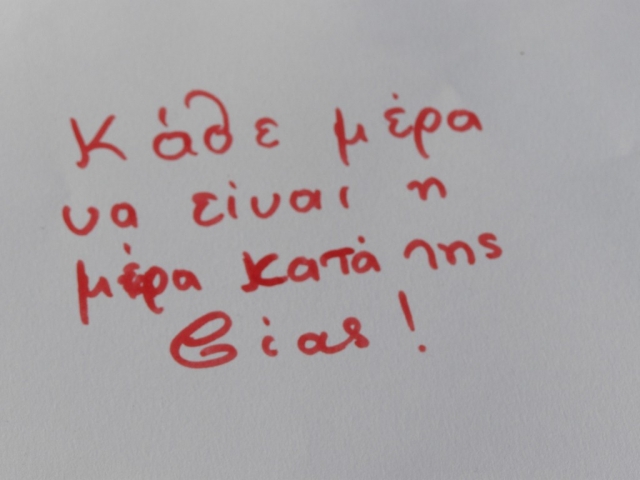 Κάθε μέρα
να είναι η
μέρα κατά της
βίας!